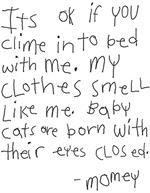 Its ok if you
clime into bed
with me. my
clothes smell
Like me. Baby
cats are born with
their eyes closed.
-momey